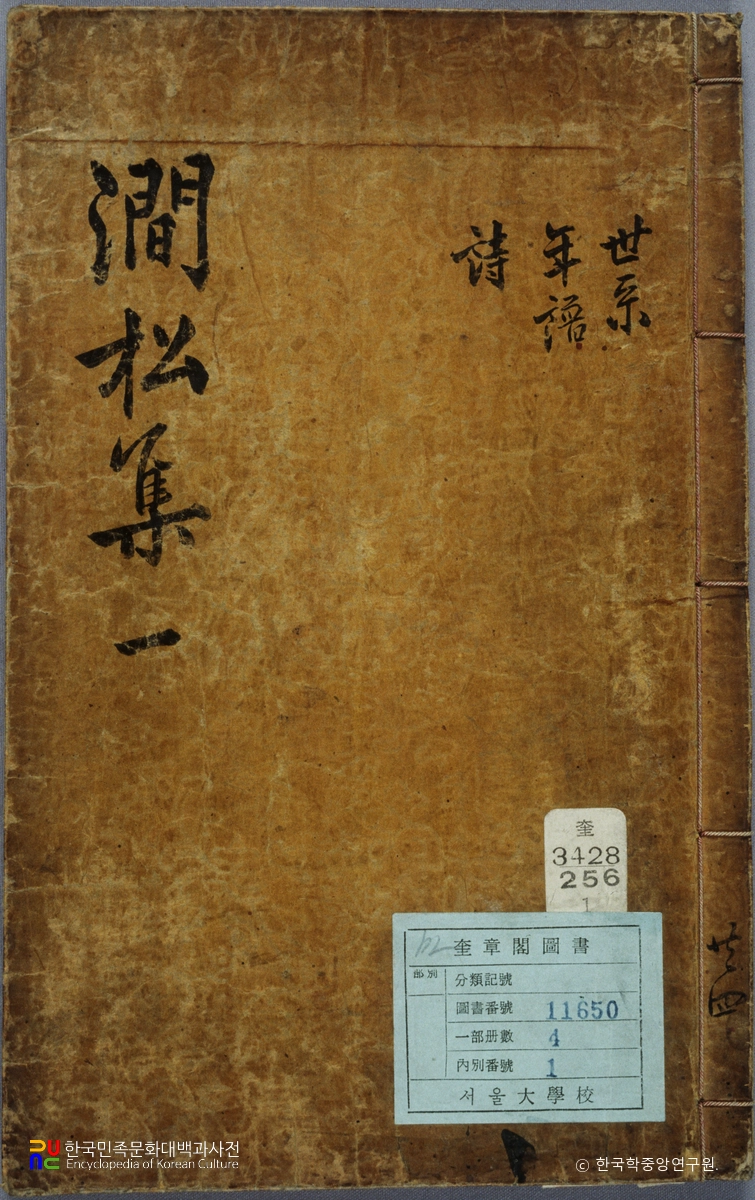 世系
年譜
詩
澗松集 一
共四
奎
3428
256
1
奎章閣圖書
部別
分類記號
圖書番號 11650
一部册數 4
內別番號 1
서울大學校
한국민족문화대백과사전
Encyclopedia of Korean Culture
© 한국학중앙연구원.